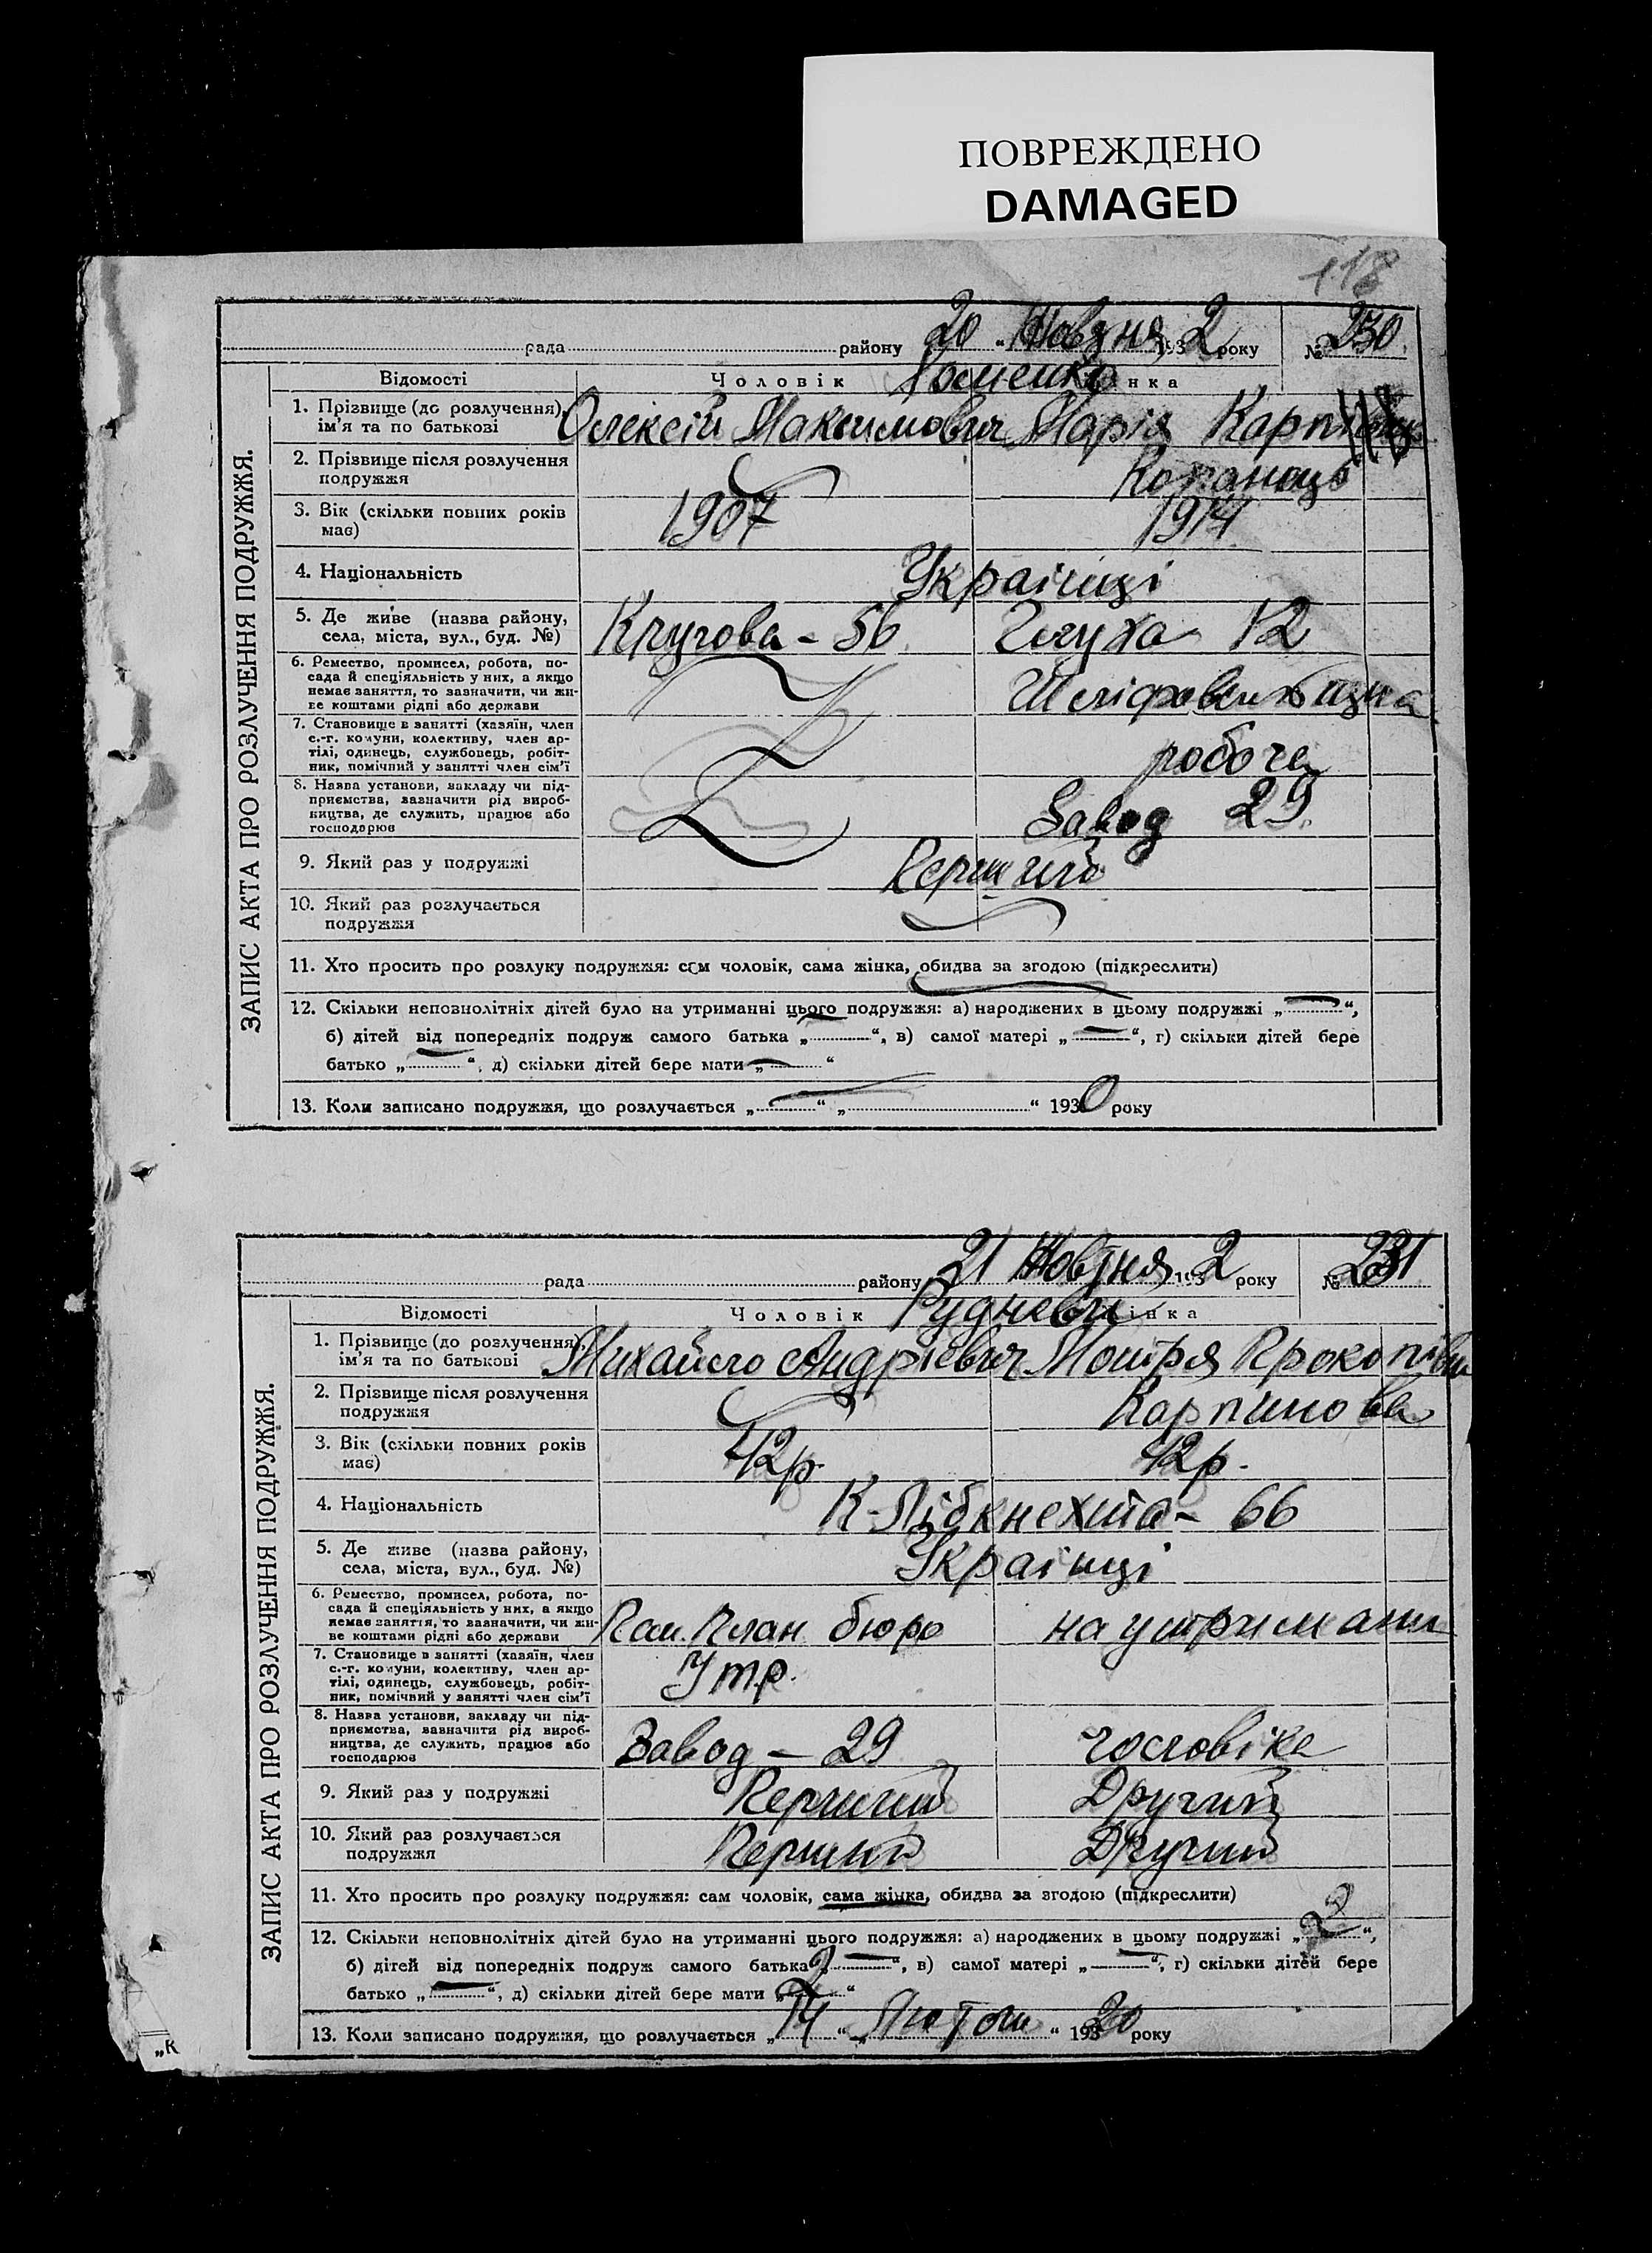 ПОВРЕЖДЕНО
DAMAGED
118
рада района району 20 "Жовтня 1932 року № 230
Відомості Чоловік інка
1. Прізвище (до розлучення), ім'я та по батькові Олексій Максимович Марія
2. Прізвище після розлучення подружжя
3. Вік (скільки повних років має) 1907 1914
4. Національність Українці
5. Де живе (назва району, села, міста, вул., буд. №) Кругова - 56 Глуха 12
6. Ремество, промисел, робота, посада й спеціяльність у них, а якщо немає заняття, то зазначити, чи живе коштами рідні або держави
7. Становище в занятті (хазяїн, член с.-г. комуни, колективу, член артілі, одинець, службовець, робітник, помічний у занятті член сім'ї робоча
8. Назва установи, закладу чи підприємства, зазначити рід виробництва, де служить, працює або господарює Завод 29
9. Який раз у подружжі Перший
10. Який раз розлучається подружжя
11. Хто просить про розлуку подружжя: сам чоловік, сама жінка, обидва за згодою (підкреслити)
12. Скільки неповнолітніх дітей було на утриманні цього подружжя: а) народжених в цьому подружжі „ — “,
б) дітей від попередніх подруж самого батька „ “, в) самої матері „ — “, г) скільки дітей бере
батько „ — “, д) скільки дітей бере мати „ — “
13. Коли записано подружжя, що розлучається „ — “ „ “ 1930 року
ЗАПИС АКТА ПРО РОЗЛУЧЕННЯ ПОДРУЖЖЯ.
рада району 21 Жовтня 1932 року № 231
Відомості Чоловік Рудневи інка
1. Прізвище (до розлучення), ім'я та по батькові Михайло Андрієвич Мотря Прокопівн
2. Прізвище після розлучення подружжя Карпинова
3. Вік (скільки повних років має) 42р. 42р.
4. Національність К-Лібкнехта - 66
5. Де живе (назва району, села, міста, вул., буд. №) Українці
6. Ремество, промисел, робота, посада й спеціяльність у них, а якщо немає заняття, то зазначити, чи живе коштами рідні або держави План бюро на утриманн
7. Становище в занятті (хазяїн, член с.-г. комуни, колективу, член артілі, одинець, службовець, робітник, помічний у занятті член сім'ї
8. Назва установи, закладу чи підприємства, зазначити рід виробництва, де служить, працює або господарює Завод - 29 чоловіка
9. Який раз у подружжі Перший Другий
10. Який раз розлучається подружжя Перший Другий
11. Хто просить про розлуку подружжя: сам чоловік, сама жінка, обидва за згодою (підкреслити)
12. Скільки неповнолітніх дітей було на утриманні цього подружжя: а) народжених в цьому подружжі „ 2 “,
б) дітей від попередніх подруж самого батька „ — “, в) самої матері „ — “, г) скільки дітей бере
батько „ — “, д) скільки дітей бере мати „ 2 “
13. Коли записано подружжя, що розлучається „ 14 “ „ “ 19320 року
ЗАПИС АКТА ПРО РОЗЛУЧЕННЯ ПОДРУЖЖЯ.
„К